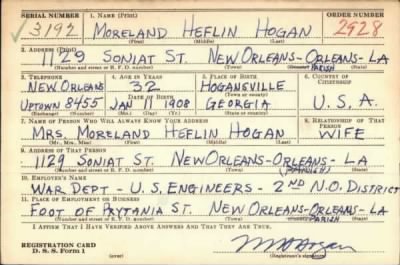 SERIAL NUMBER 1. NAME (Print) ORDER NUMBER
3192 MORELAND HEFLIN HOGAN 2928
(First) (Middle) (Last)
2. ADDRESS (Print)
1129 SONIAT ST. NEW ORLEANS-ORLEANS-LA
(Number and street or R. F. D. number) (Town) PARISH (State)
3. TELEPHONE 4. AGE IN YEARS 5. PLACE OF BIRTH 6. COUNTRY OF CITIZENSHIP
NEW ORLEANS 32 HOGANSVILLE
DATE OF BIRTH (Town)
UPTOWN 8455 JAN 11 1908 GEORGIA U.S.A.
(Exchange) (Number) (Mo.) (Day) (Yr.) (State or country)
7. NAME OF PERSON WHO WILL ALWAYS KNOW YOUR ADDRESS 8. RELATIONSHIP OF THAT PERSON
MRS. MORELAND HEFLIN HOGAN WIFE
(Mr., Mrs., Miss) (First) (Middle) (Last)
9. ADDRESS OF THAT PERSON
1129 SONIAT ST. NEW ORLEANS-ORLEANS-LA
(Number and street or R. F. D. number) (Town) (PARISH) (State)
10. EMPLOYER'S NAME
WAR DEPT - U.S. ENGINEERS - 2ND N.O. DISTRICT
11. PLACE OF EMPLOYMENT OR BUSINESS
FOOT OF PRYTANIA ST. NEW ORLEANS-ORLEANS-LA
(Number and street or R. F. D. number) (Town) PARISH (State)
I AFFIRM THAT I HAVE VERIFIED ABOVE ANSWERS AND THAT THEY ARE TRUE.
REGISTRATION CARD
D. S. S. Form 1 (Registrant's signature)